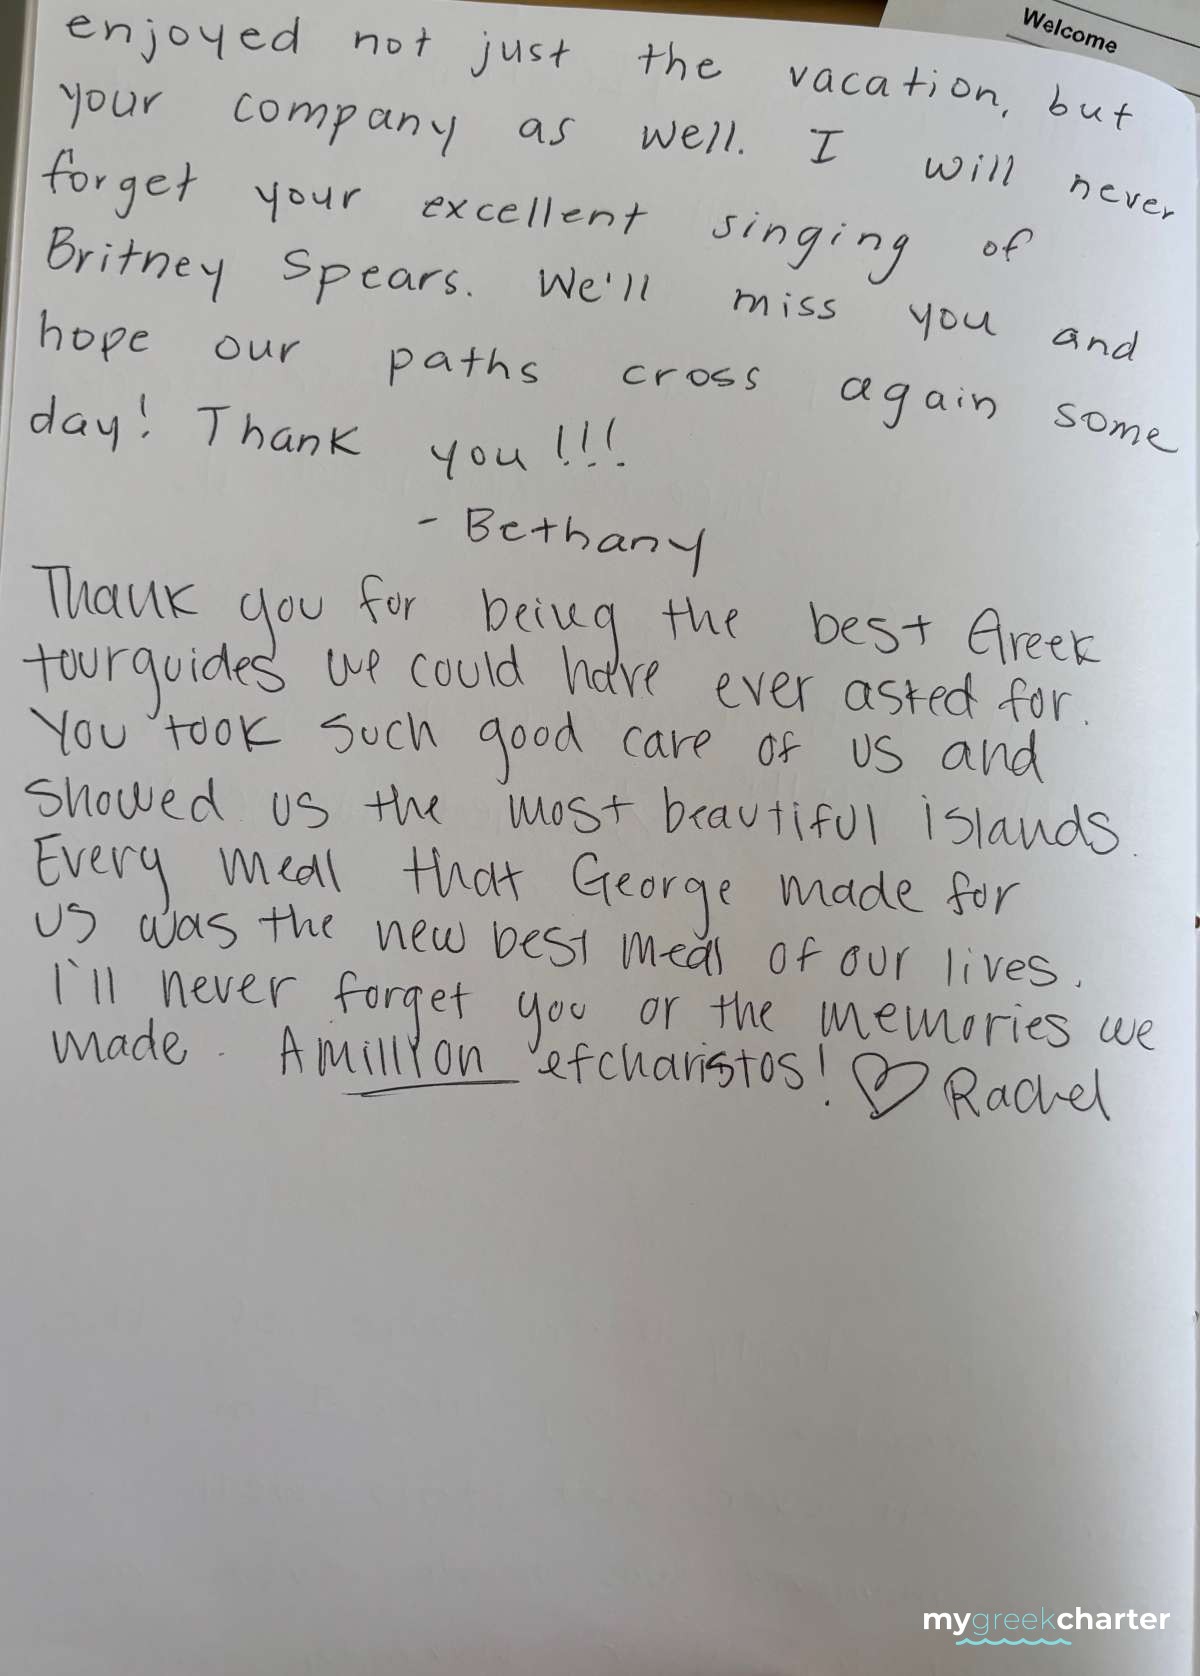 Welcome
enjoyed not just the vacation, but
your company as well. I will never
forget your excellent singing of
Britney Spears. We'll miss you and
hope our paths cross again some
day! Thank you!!!
- Bethany
Thank you for being the best Greek
tourguides we could have ever asked for.
You took such good care of us and
showed us the most beautiful islands.
Every meal that George made for
us was the new best meal of our lives.
I'll never forget you or the memories we
made. A million efcharistos! ♡ Rachel
mygreekcharter